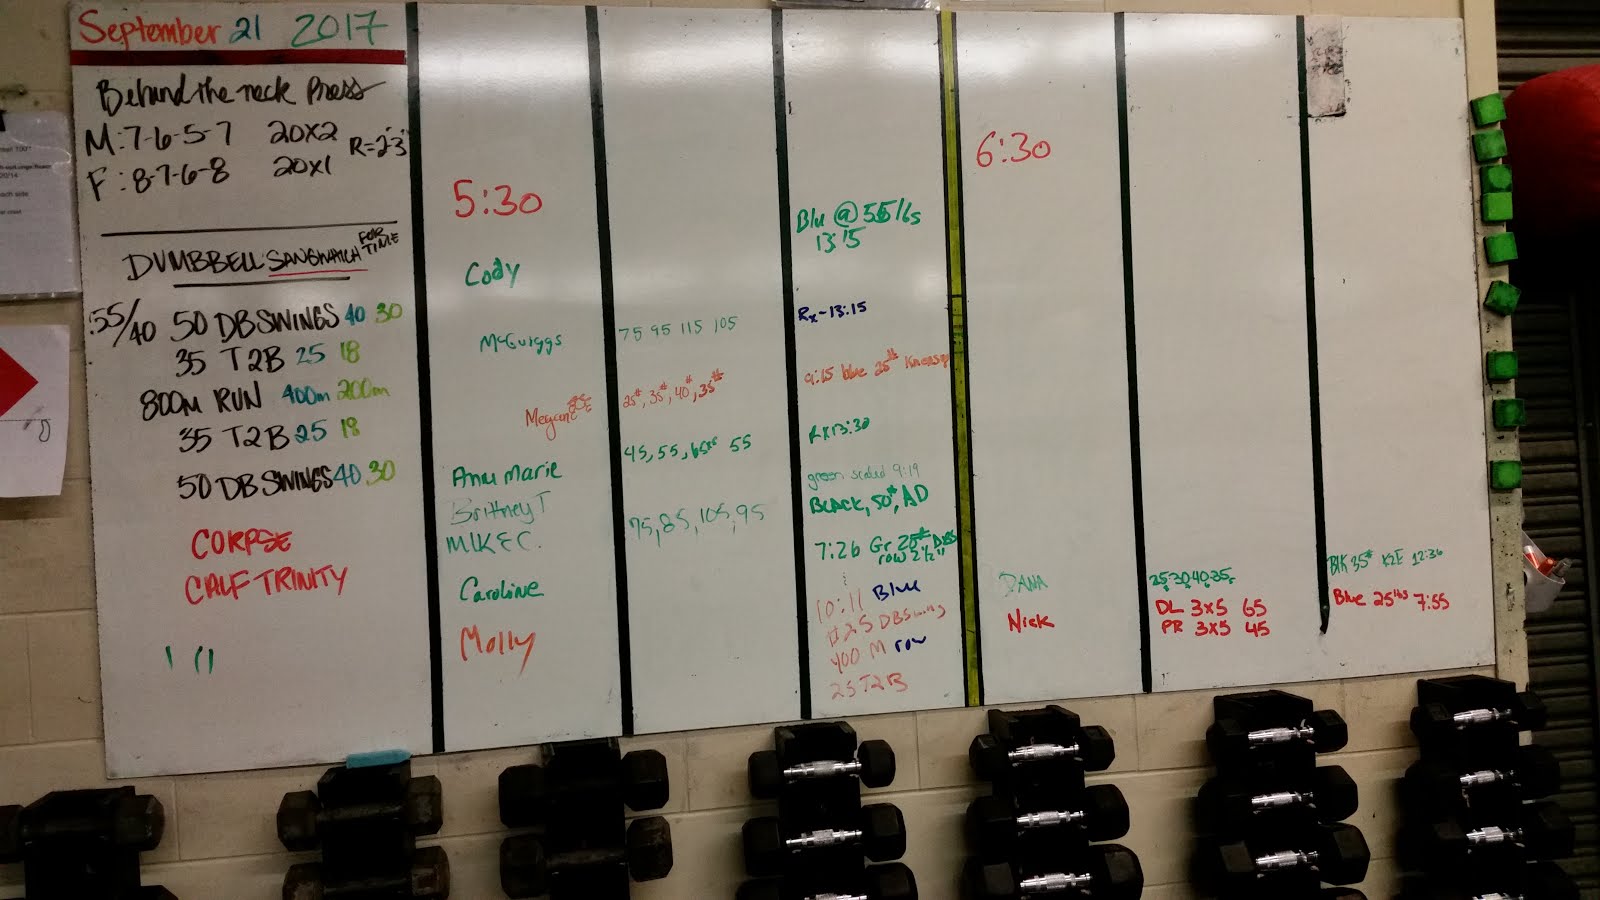 September 21 2017
Behind the neck Press
M: 7-6-5-7 20x2 R=2'-3'
F: 8-7-6-8 20x1
DUMBBELL SANGWHICH FOR TIME
55/40 50 DB SWINGS 40 30
35 T2B 25 18
800M RUN 400m 200m
35 T2B 25 18
50 DB SWINGS 40 30
CORPSE
CALF TRINITY
5:30
Cody
McGuiggs
Megan
Anna Marie
Brittney T
MIKE C.
Caroline
Molly
75 95 115 105
25#, 35#, 40#, 35#
45, 55, 65 55
75, 85, 105, 95
Blu @ 55lbs
13:15
Rx - 13:15
9:15 blue 25#
Rx 13:30
green scaled 9:19
BLACK, 50#, AD
7:26 Gr 25# DBS
row 2 1/2"
10:11 Blue
25 DB Swing
400 M row
25 T2B
6:30
DANA
Nick
25, 30, 40, 35
DL 3x5 65
PR 3x5 45
Blk 35# K2E 12:36
Blue 25lbs 7:55